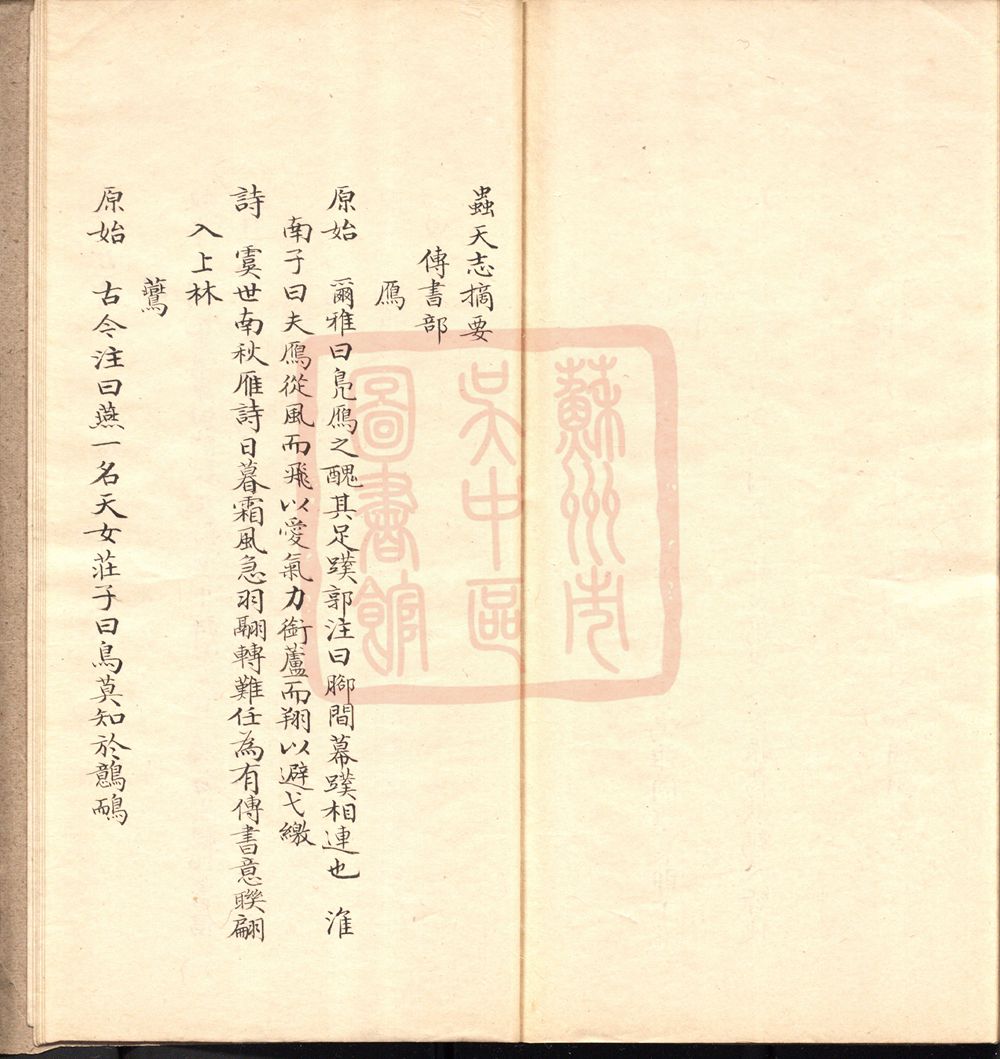 蟲天志摘要
傳書部
鴈
原始 爾雅曰鳧鴈之醜其足蹼郭注曰腳間幕蹼相連也 淮
南子曰夫鴈從風而飛以愛氣力銜蘆而翔以避弋繳
詩 虞世南秋雁詩日暮霜風急羽翮轉難任為有傳書意聯翩
入上林
鷰
原始 古今注曰燕一名天女莊子曰鳥莫知於鷾鴯
蘇州市
吳中區
圖書館